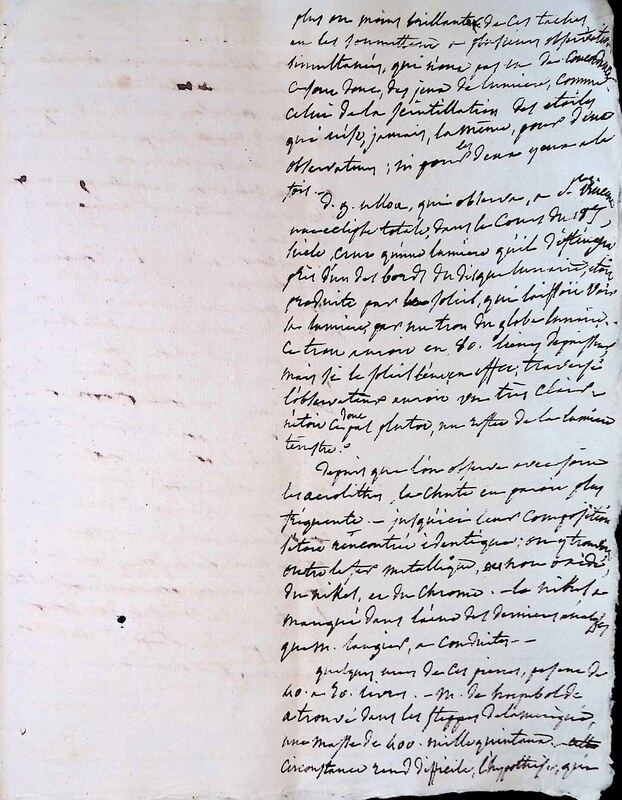 plus ou moins brillante, de ces taches
en les soumettant a plusieurs observations
simultanées, qui n'ont pas eu de
ce sont donc, des jeux de lumiere, comme
celui de la scintillation des etoiles
qui n'est, jamais, la même, pour deux
observateurs; ni pour les deux yeux a la
fois.
D. g. ulloa, qui observa, a
une eclipse totale, dans le Cours du 18e
siecle, crut qu'une lumiere qu'il
près d'un des bords du disque lunaire, etoit
produite par le soleil, qui laissoit voir
sa lumiere, par un trou du globe lunaire. -
Ce trou auroit eu 80. lieues
mais si le soleil l'eut en effet, traversé
l'observateur auroit vu très clair -
n'etoit ce donc pas plutot, un reflet de la lumiere
terrestre?
Depuis que l'on observe avec soin
les aerolithes, la chute en paroit plus
fréquente. - jusqu'ici leur composition
s'etoit rencontrée identique; on y trouvoit
outre le fer metallique, non oxidé,
du nikel, et du chrome. - le nikel a
manqué dans l'une des dernieres analyses
que M. laugier, a conduites - -
quelques unes de ces pierres, pesent de
40. a 50. livres. - M. de humbold
a trouvé dans les steppes de l'amerique,
une masse de 400. mille quintaux,
circonstance rend difficile, l'hypothese, qui